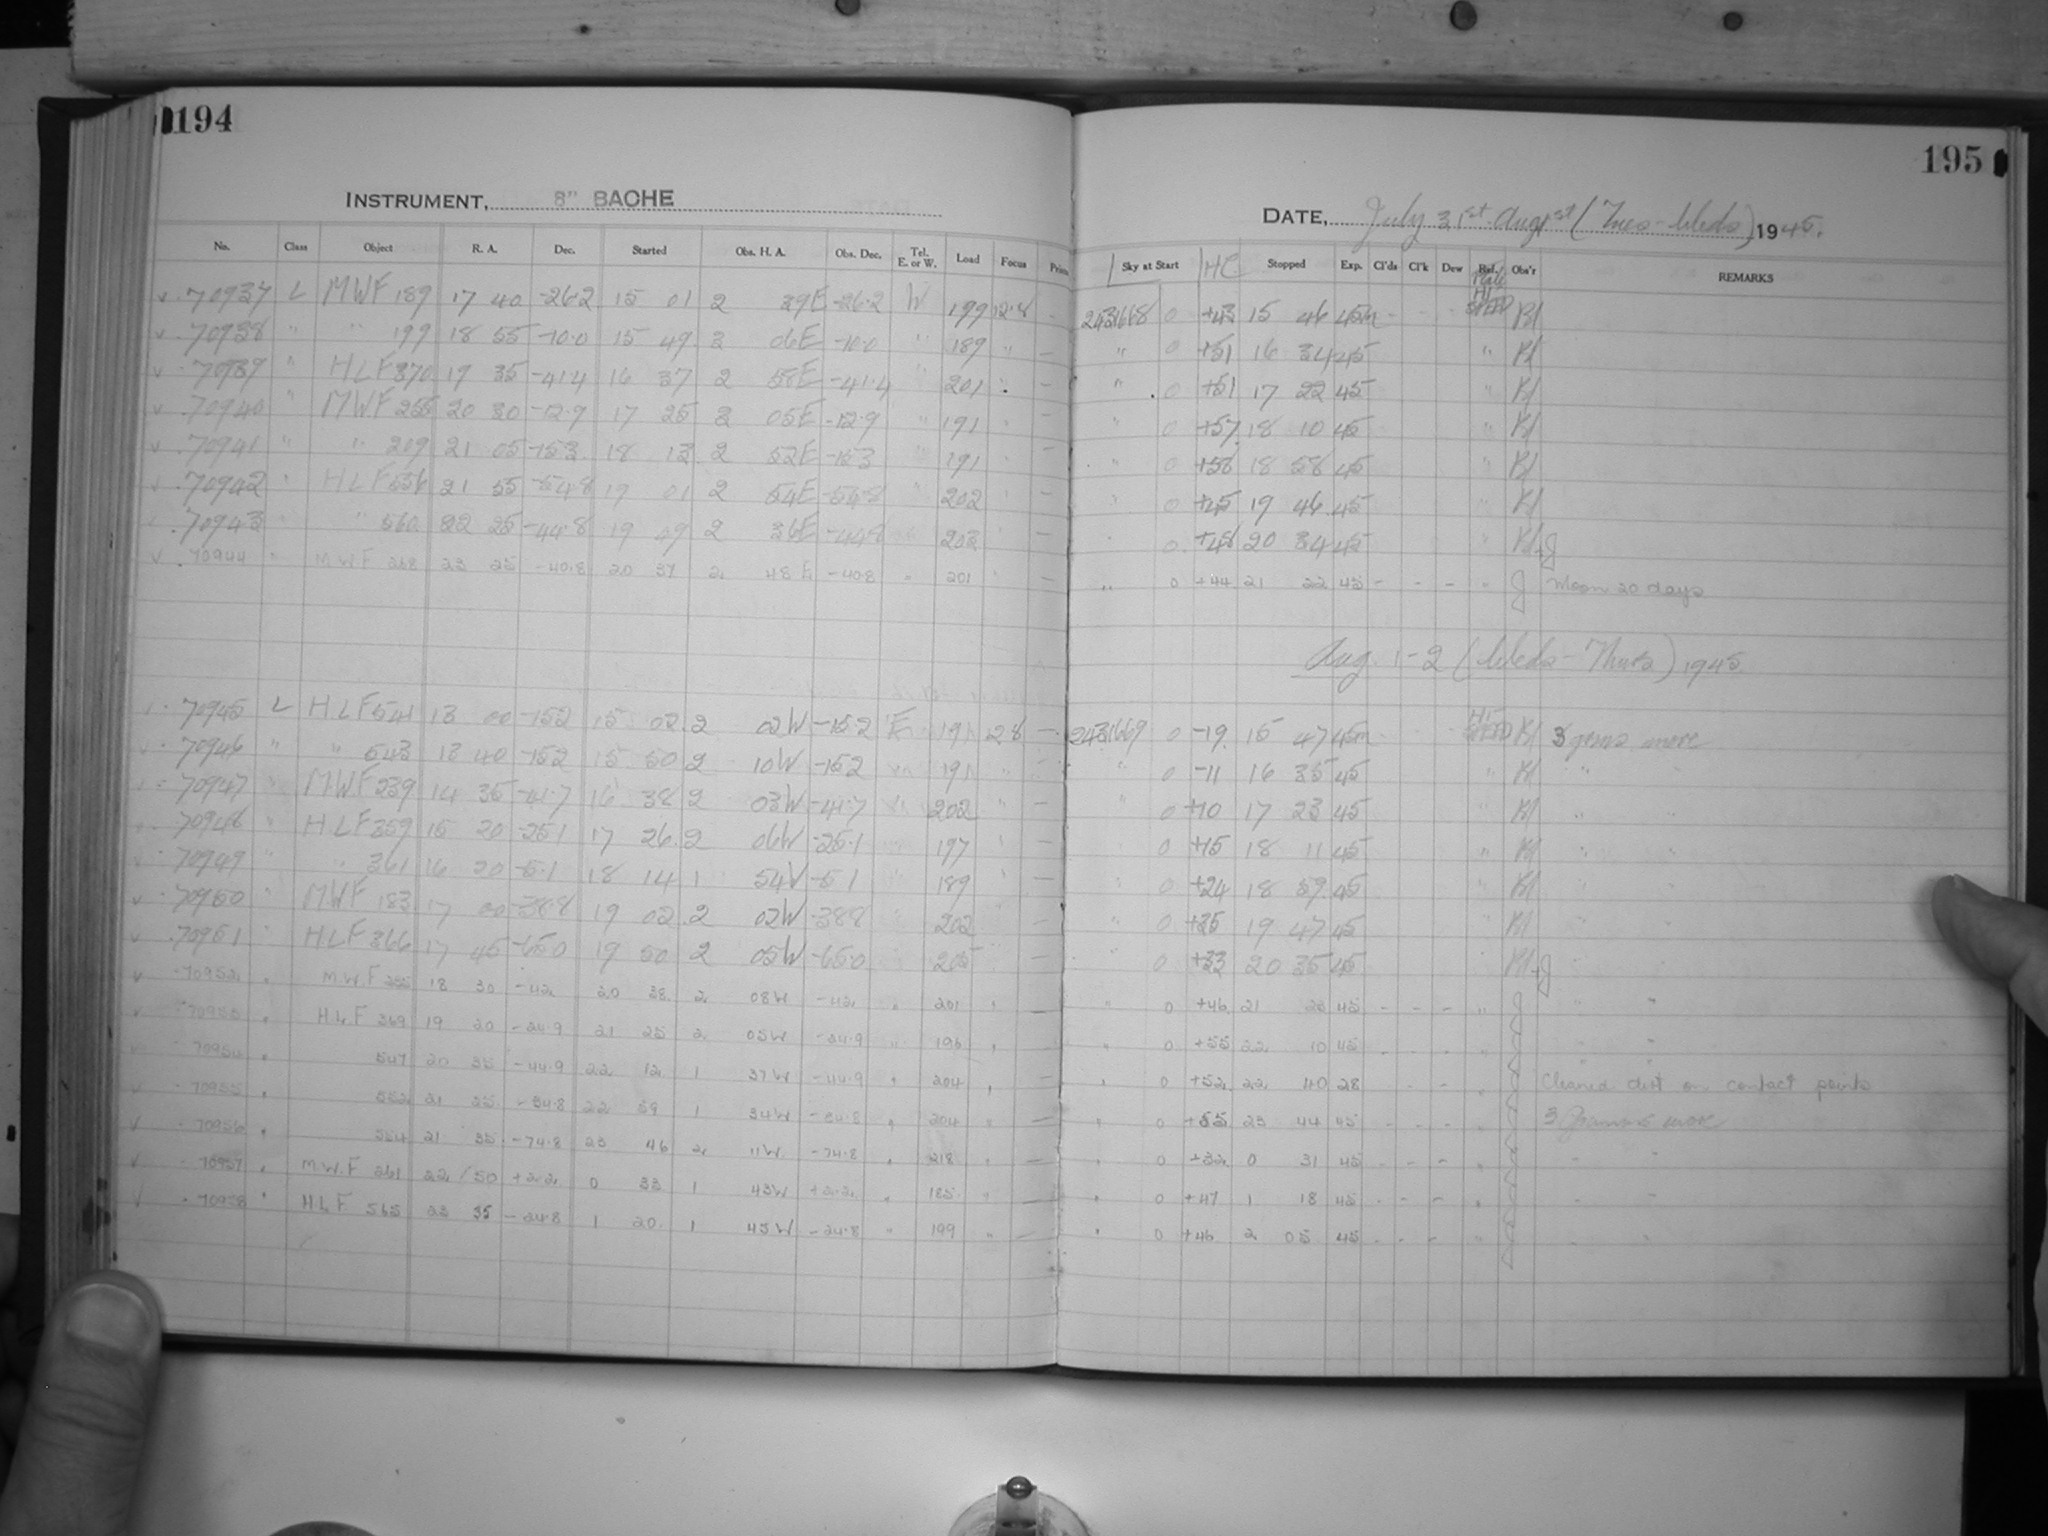 194
INSTRUMENT, 8" BACHE
No. Class Object R. A. Dec. Started Obs. H. A. Obs. Dec. Tel. E. or W. Load Focus
70937 L MWF 189 17 40 -26.2 15 01 2 39E -26.2 W 199 12.8
70938 " " 199 18 55 -10.0 15 49 3 06E -10.0 " 189 " -
70939 " HLF 370 19 35 -41.4 16 37 2 58E -41.4 " 201 -
70940 " MWF 255 20 30 -12.9 17 25 3 05E -12.9 " 191 -
70941 " " 209 21 05 -15.3 18 13 2 52E -15.3 " 191 -
70942 " HLF 556 21 55 -54.8 19 01 2 54E -54.8 " 202 -
70943 " " 560 22 25 -44.8 19 49 2 36E -44.8 203
70944 " MWF 268 23 25 -40.8 20 37 2 48E -40.8 " 201 -
70945 L HLF 541 13 00 -15.2 15 02 2 02W -15.2 E 191 2.8 -
70946 " " 543 13 40 -15.2 15 50 2 10W -15.2 191 " -
70947 " MWF 239 14 35 -41.7 16 38 2 03W -41.7 202 " -
70948 " HLF 359 15 20 -25.1 17 26 2 06W -25.1 197 -
70949 " " 361 16 20 -5.1 18 14 1 54W -5.1 189 -
70950 " MWF 183 17 00 -38.8 19 02 2 02W -38.8 202 -
70951 " HLF 366 17 45 -65.0 19 50 2 05W -65.0 205 -
70952 " M.W.F 255 18 30 -42. 20 38 2 08W -42. " 201 " -
70953 " HLF 369 19 20 -24.9 21 25 2 05W -24.9 " 196 " -
70954 " 547 20 35 -44.9 22 12 1 37W -44.9 " 204 " -
70955 " 552 21 25 -54.8 22 59 1 34W -54.8 " 204 " -
70956 " 554 21 35 -74.8 23 46 2 11W -74.8 " 218 " -
70957 " M.W.F 261 22 50 +2.2 0 33 1 43W +2.2 " 185 " -
70958 " H.L.F 565 23 35 -24.8 1 20 1 45W -24.8 " 199 " -
195
DATE, July 31st-Aug 1st (Tues-Weds) 1945.
Sky at Start HC Stopped Exp. Cl'ds Cl'k Dew Obs'r REMARKS
2431668 0 +43 15 46 45m - - HI SPEED Bl
" 0 +51 16 34 45 " Bl
" 0 +51 17 22 45 Bl
" 0 +57 18 10 45 " Bl
" 0 +56 18 58 45 " Bl
" 0 +45 19 46 45 " Bl
" 0 +48 20 34 45 " Bl+J
" 0 +44 21 22 45 - - - " J Moon 20 days
Aug. 1-2 (Weds-Thurs) 1945.
2431669 0 -19 15 47 45m HI SPEED Bl 3 grms more
" 0 -11 16 35 45 " Bl " "
" 0 +10 17 23 45 Bl " "
0 +15 18 11 45 " Bl " "
" 0 +24 18 59 45 " Bl " "
" 0 +35 19 47 45 " Bl " "
" 0 +33 20 35 45 Bl+J "
" 0 +46 21 23 45 - - - " J " "
" 0 +55 22 10 45 - - - " J " "
" 0 +52 22 40 28 - - " J Cleaned dirt on contact points
" 0 +55 23 44 45 - - - " J 3 Grammes more
" 0 +32 0 31 45 - - - " J " "
" 0 +47 1 18 45 - - - " J " "
" 0 +46 2 05 45 - - - " J " "